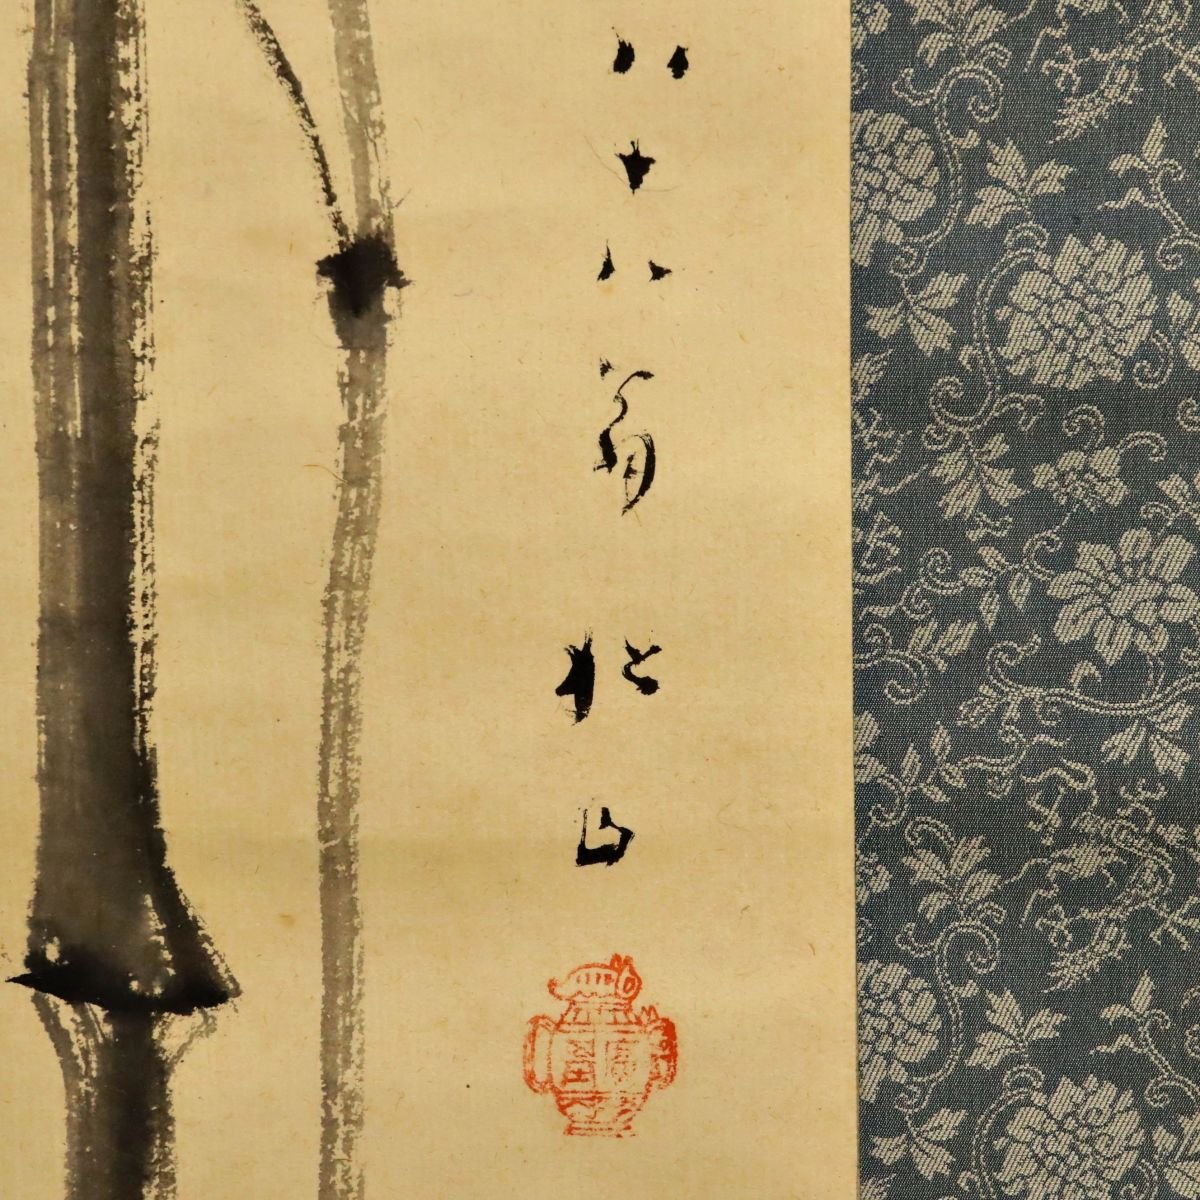 八十八翁松山